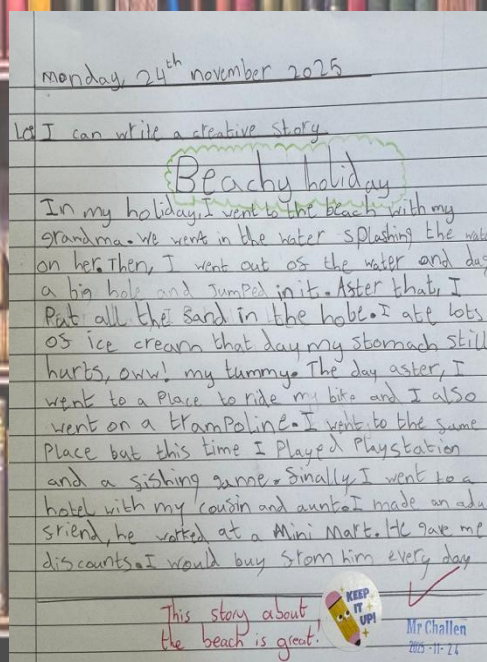 Monday, 24th november 2025
Lo: I can write a creative story
Beachy holiday
In my holiday, I went to the beach with my
grandma. We went in the water splashing the wat
on her. Then, I went out of the water and dug
a big hole and jumped in it. After that, I
Put all the sand in the hobe. I ate lots
of ice cream that day my stomach still
hurts, oww! my tummy. The day after, I
went to a Place to ride my bike and I also
went on a trampoline. I went to the same
Place but this time I Played Playstation
and a fishing game. Finally, I went to a
hotel with my cousin and aunt. I made an adu
friend, he worked at a Mini Mart. He gave me
discounts. I would buy from him every day
This story about
the beach is great!
KEEP
IT
UP!
Mr Challen
2025-11-24